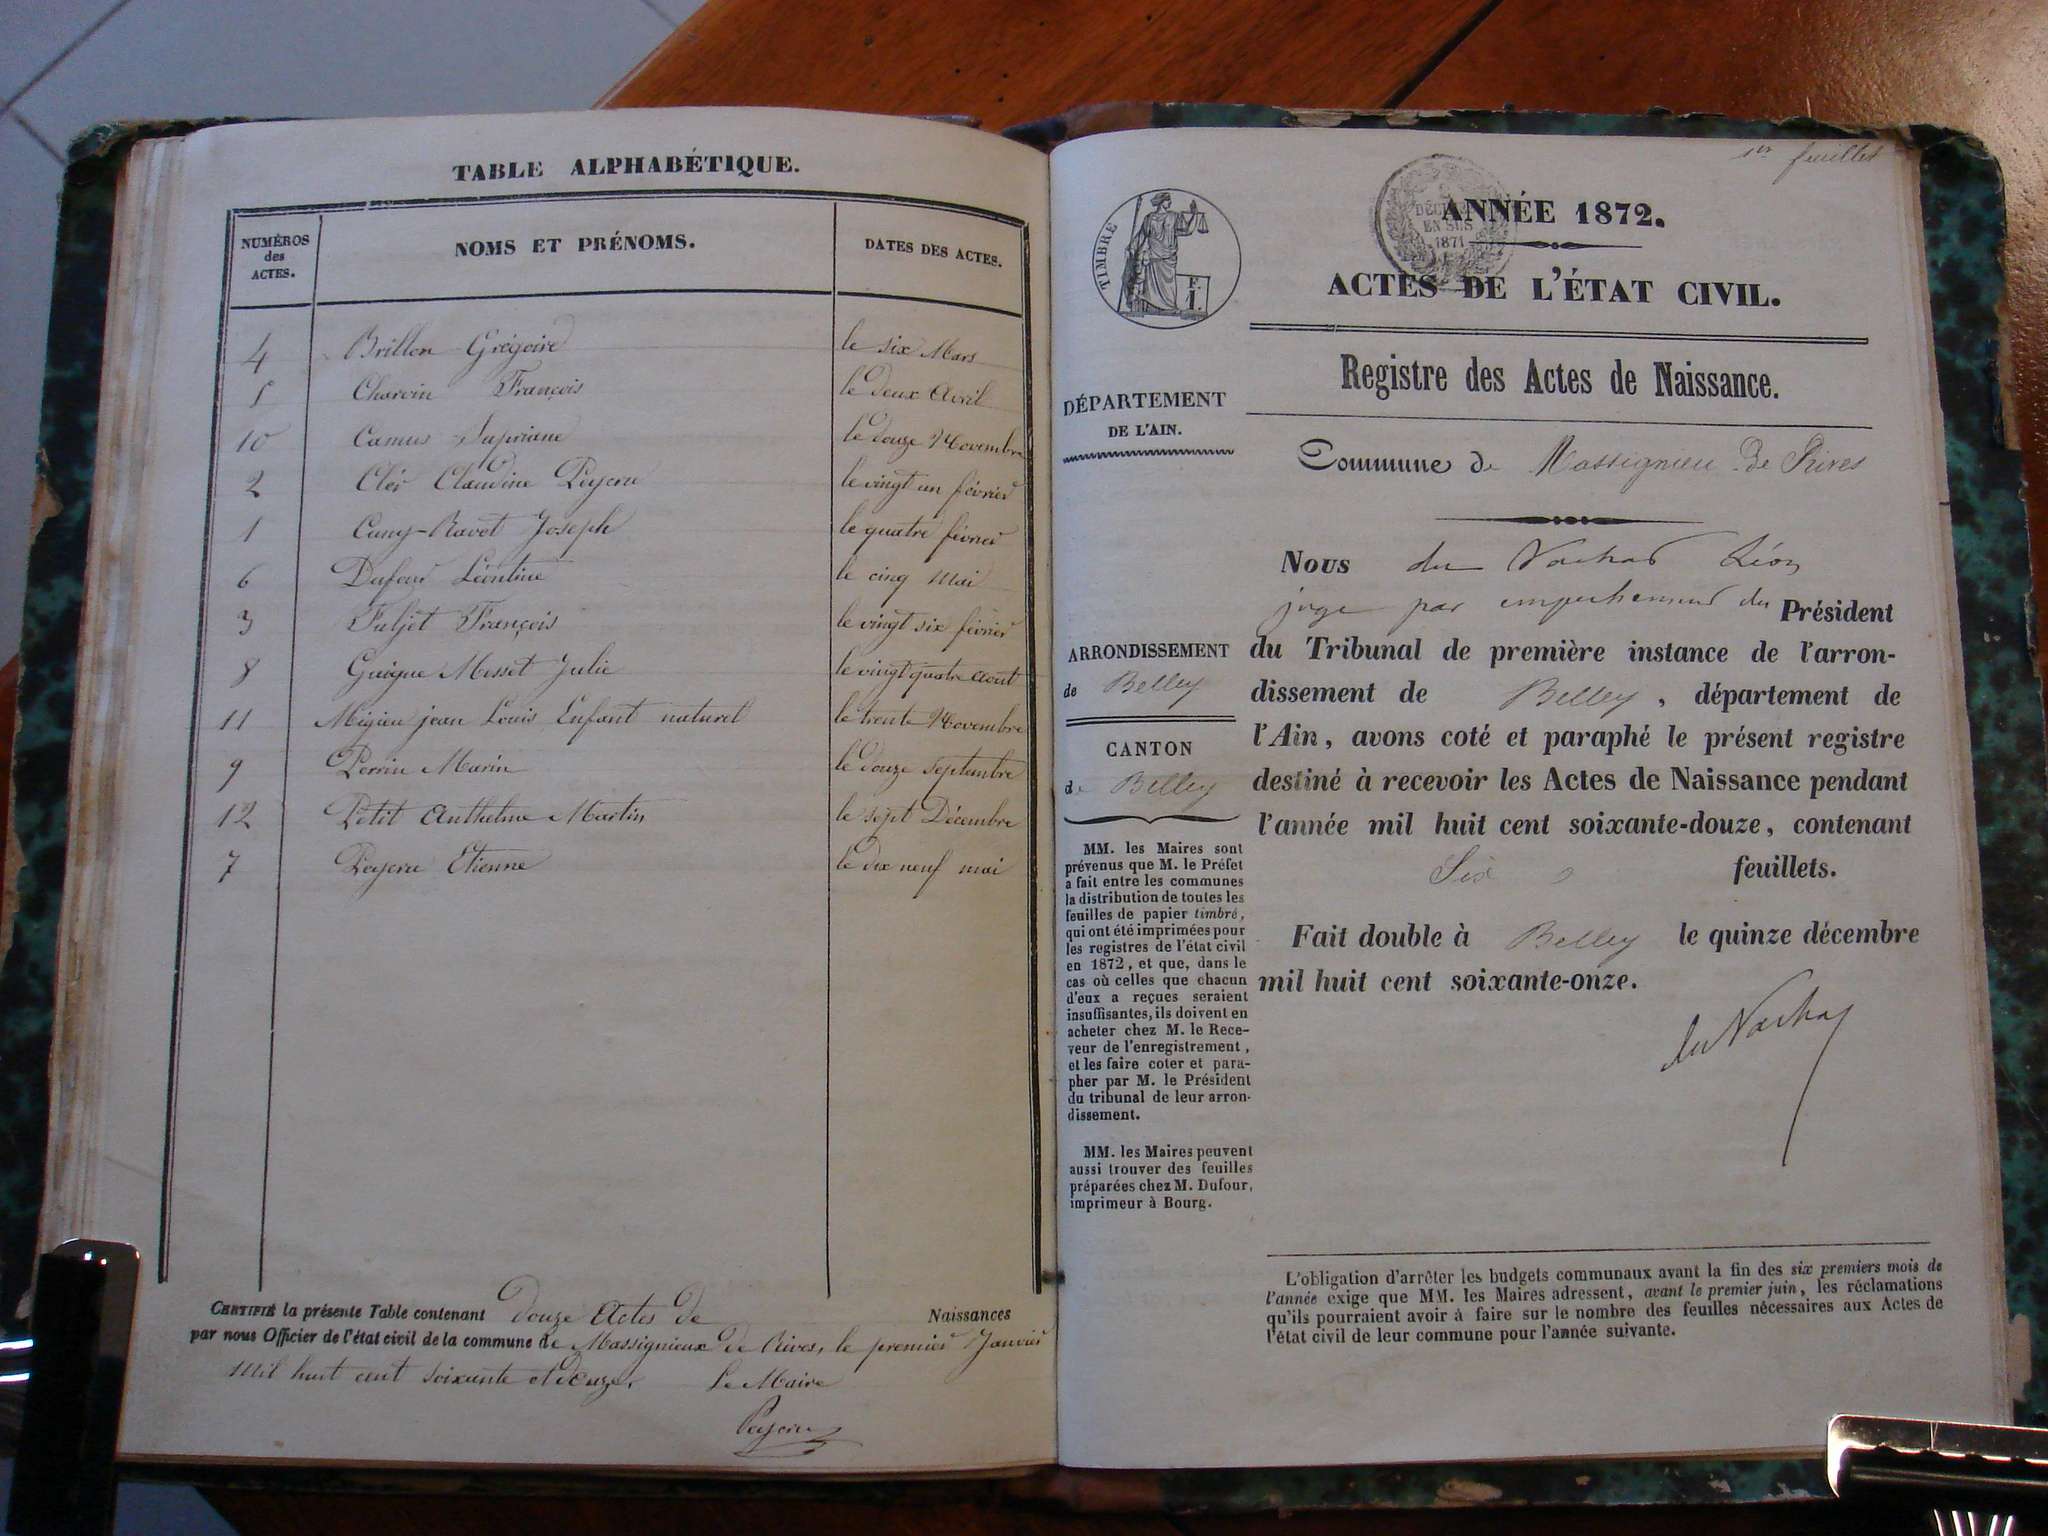 TABLE ALPHABÉTIQUE.
NUMÉROS des ACTES.
NOMS ET PRÉNOMS.
DATES DES ACTES.
4 Brillon Grégoire le six Mars
5 Charvin François le deux Avril
10 Camus le douze Novembre
2 Claudine Peysru le vingt un février
1 Cuny-Ravet Joseph le quatre février
6 Dufour Léontine le cinq Mai
3 Fuljet François le vingt six février
8 Guigue Messet Julie le vingt quatre Aout
11 Migieu jean Louis Enfant naturel le trente Novembre
9 Perrin Marin le douze septembre
12 Petit Anthelme Martin le sept Décembre
7 Peysru Etienne le dix neuf mai
CERTIFIÉ la présente Table contenant Douze Actes de Naissances
par nous Officier de l'état civil de la commune de Massignieux de Rives, le premier Janvier
Mil huit cent soixante et douze. Le Maire
Peysru
1er feuillet
TIMBRE
DÉCIMES
EN SUS
1871
ANNÉE 1872.
ACTES DE L'ÉTAT CIVIL.
Registre des Actes de Naissance.
DÉPARTEMENT
DE L'AIN.
Commune de Massignieu de Rives
Nous du Vachat Léon
juge par empechement du Président
du Tribunal de première instance de l'arron-
dissement de Belley, département de
l'Ain, avons coté et paraphé le présent registre
destiné à recevoir les Actes de Naissance pendant
l'année mil huit cent soixante-douze, contenant
Six feuillets.
Fait double à Belley le quinze décembre
mil huit cent soixante-onze.
du Vachat
ARRONDISSEMENT
de Belley
CANTON
de Belley
MM. les Maires sont
prévenus que M. le Préfet
a fait entre les communes
la distribution de toutes les
feuilles de papier timbré,
qui ont été imprimées pour
les registres de l'état civil
en 1872, et que, dans le
cas où celles que chacun
d'eux a reçues seraient
insuffisantes, ils doivent en
acheter chez M. le Rece-
veur de l'enregistrement,
et les faire coter et para-
pher par M. le Président
du tribunal de leur arron-
dissement.
MM. les Maires peuvent
aussi trouver des feuilles
préparées chez M. Dufour,
imprimeur à Bourg.
L'obligation d'arrêter les budgets communaux avant la fin des six premiers mois de
l'année exige que MM. les Maires adressent, avant le premier juin, les réclamations
qu'ils pourraient avoir à faire sur le nombre des feuilles nécessaires aux Actes de
l'état civil de leur commune pour l'année suivante.